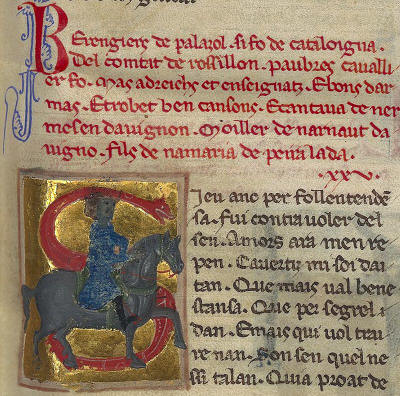 Berengiers de palazol. si fo de cataloigna.
Del comtat de rossillon. paubres cavalli
er fo. Mas adreichs et enseignatz. E bons dar
mas. E trobet ben cansons. E cantava de ner
mesen davignon. Moiller de narnaut da
vigno. fils de na maria de peira lada.
.xxv.
Sieu anc per fol entenden
sa. fui contra voler del
sen. Amors ara men re
pen. Cavertz mi soi dai
tan. Que mais val bene
stansa. Que per segrel
dan. E mais qui vol trai
re nan. Son sen quel ne
talan. Quia proat de